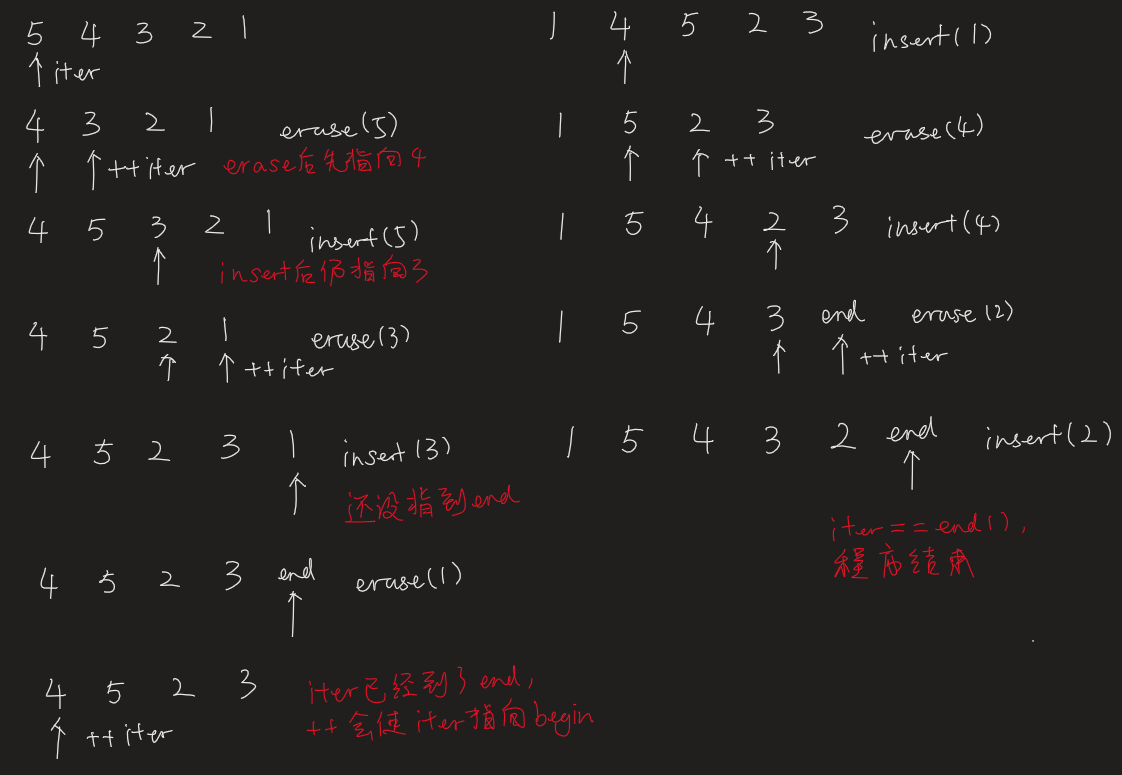 5 4 3 2 1
↑ iter
4 3 2 1 erase(5)
↑ ↑ ++iter erase后先指向4
4 5 3 2 1 insert(5)
↑ insert后仍指向3
4 5 2 1 erase(3)
↑ ↑ ++iter
4 5 2 3 1 insert(3)
↑ 还没指到end
4 5 2 3 end erase(1)
↑
4 5 2 3 iter已经到了end,
↑ ++iter ++会使iter指向begin
1 4 5 2 3 insert(1)
↑
1 5 2 3 erase(4)
↑ ↑ ++iter
1 5 4 2 3 insert(4)
↑
1 5 4 3 end erase(2)
↑ ↑ ++iter
1 5 4 3 2 end insert(2)
↑
iter==end(),
程序结束